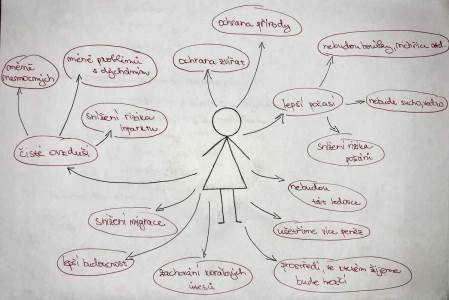 ochrana přírody
ochrana zvířat
méně problémů
s dýcháním
méně
nemocných
snížení rizika
infarktu
čisté ovzduší
lepší počasí
nebudou bouřky, vichřice atd.
nebude sucho,
snížení rizika
požárů
nebudou
tát ledovce
ušetříme více peněz
prostředí, ve kterém žijeme
bude hezčí
zachování korálových
útesů
lepší budoucnost
snížení migrace